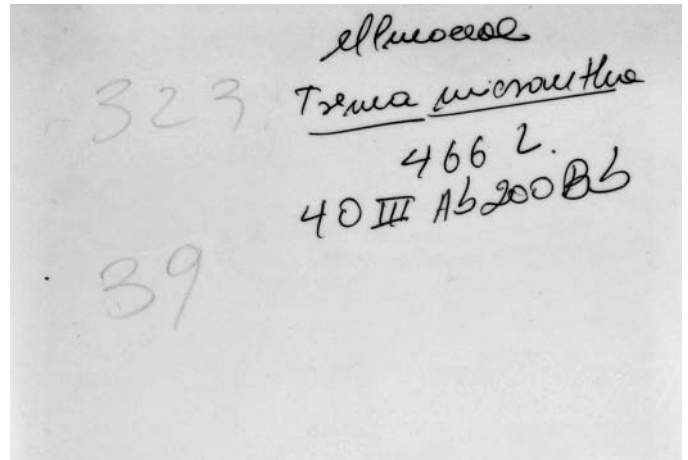 Ulmaceae
Trema micrantha
466 L.
40 III Ab200Bb
323
39